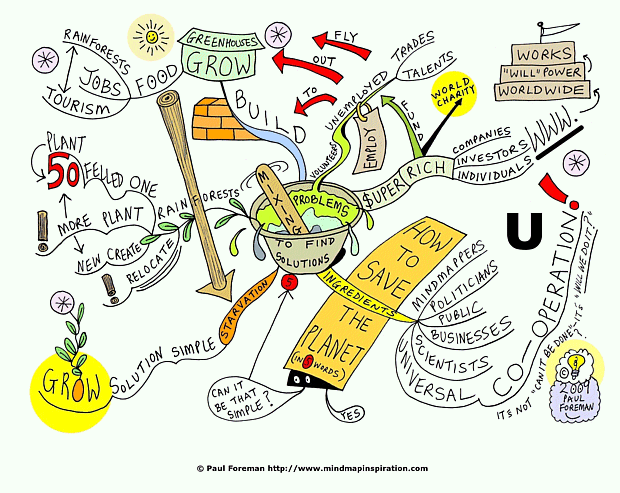 RAINFORESTS
JOBS
TOURISM
FOOD
GREENHOUSES
GROW
BUILD
FLY
OUT
TO
UNEMPLOYED
TRADES
TALENTS
VOLUNTEERS
EMPLOY
FUND
WORLD
CHARITY
WORKS
"WILL" POWER
WORLDWIDE
SUPER RICH
$
COMPANIES
INVESTORS
INDIVIDUALS
WWW.
PLANT
50
FELLED ONE
MORE PLANT
NEW CREATE
RELOCATE
RAINFORESTS
MIXING
PROBLEMS
TO FIND
SOLUTIONS
STARVATION
SOLUTION SIMPLE
GROW
5
INGREDIENTS
HOW
TO
SAVE
THE
PLANET
(IN 5 WORDS)
CAN IT
BE THAT
SIMPLE?
YES
MINDMAPPERS
POLITICIANS
PUBLIC
BUSINESSES
SCIENTISTS
UNIVERSAL
CO-OPERATION
U
!
IT'S NOT "CAN IT BE DONE"? IT'S "WILL WE DO IT?"
©
2009
PAUL
FOREMAN
© Paul Foreman http://www.mindmapinspiration.com